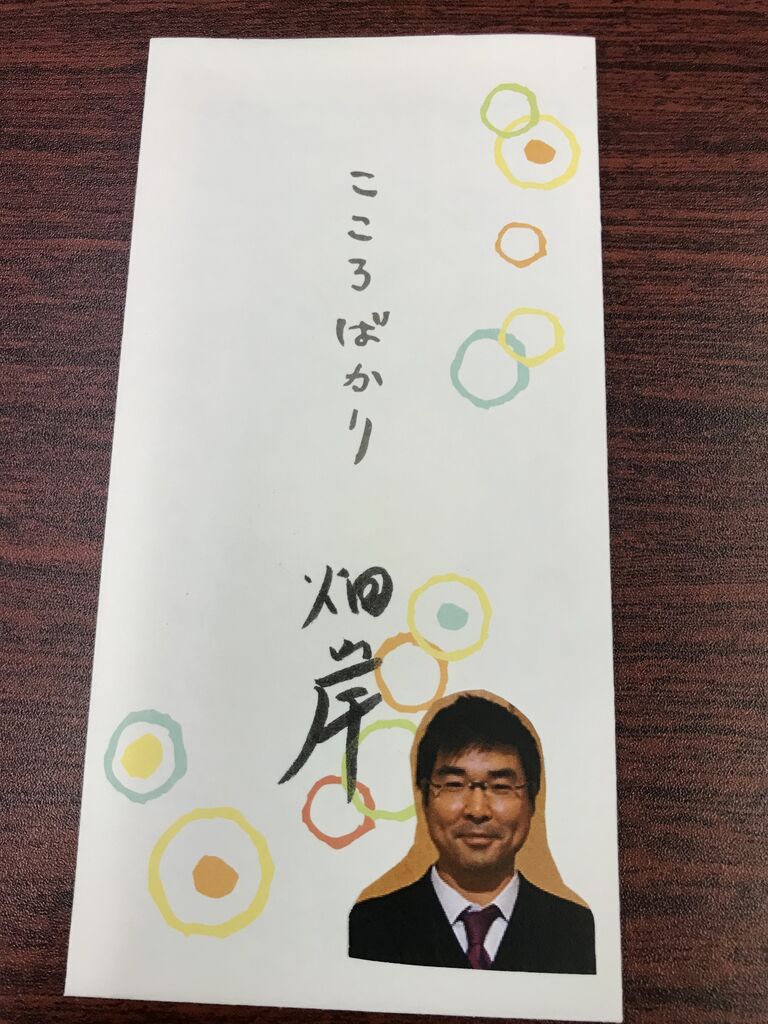 こころばかり
畑岸